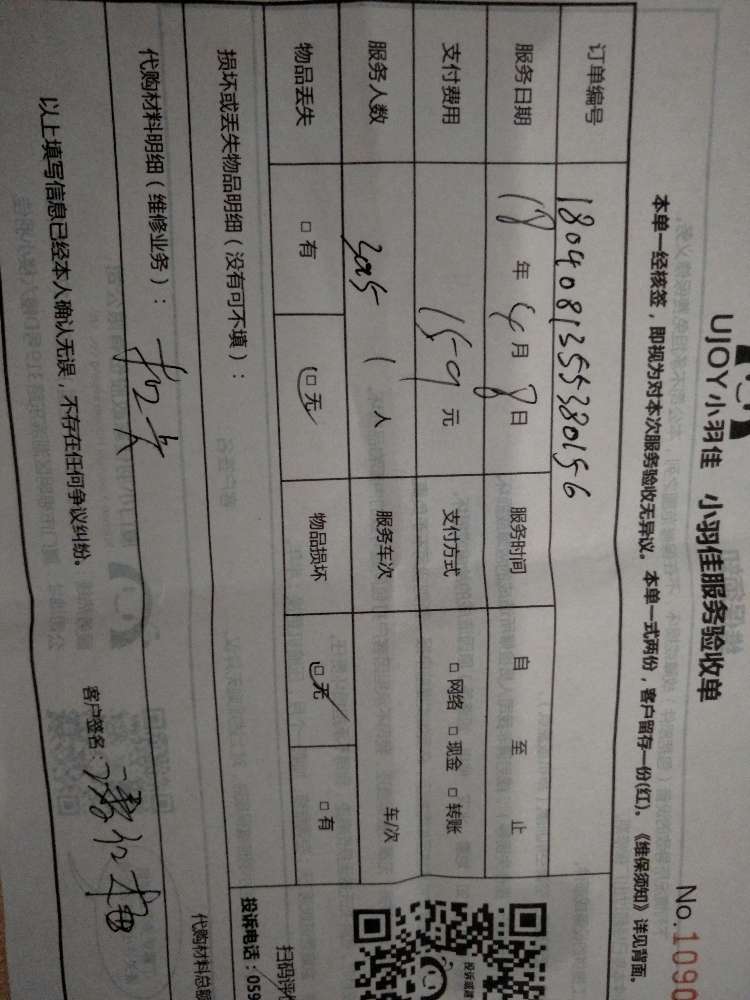 UJOY小羽佳 小羽佳服务验收单
No.1090
本单一经核签，即视为对本次服务验收无异议。本单一式两份，客户留存一份(红)。《维保须知》详见背面。
订单编号 1804081355380156
服务日期 18 年 4 月 8 日 服务时间 自 至 止
支付费用 159 元 支付方式 □ 网络 □ 现金 □ 转账
服务人数 1 人 服务车次 车/次
物品丢失 □ 有 □ 无 物品损坏 □ 无 □ 有
损坏或丢失物品明细（没有可不填）：
扫码评
投诉电话：059
代购材料明细（维修业务）：
代购材料总
以上填写信息已经本人确认无误，不存在任何争议纠纷。
客户签名：